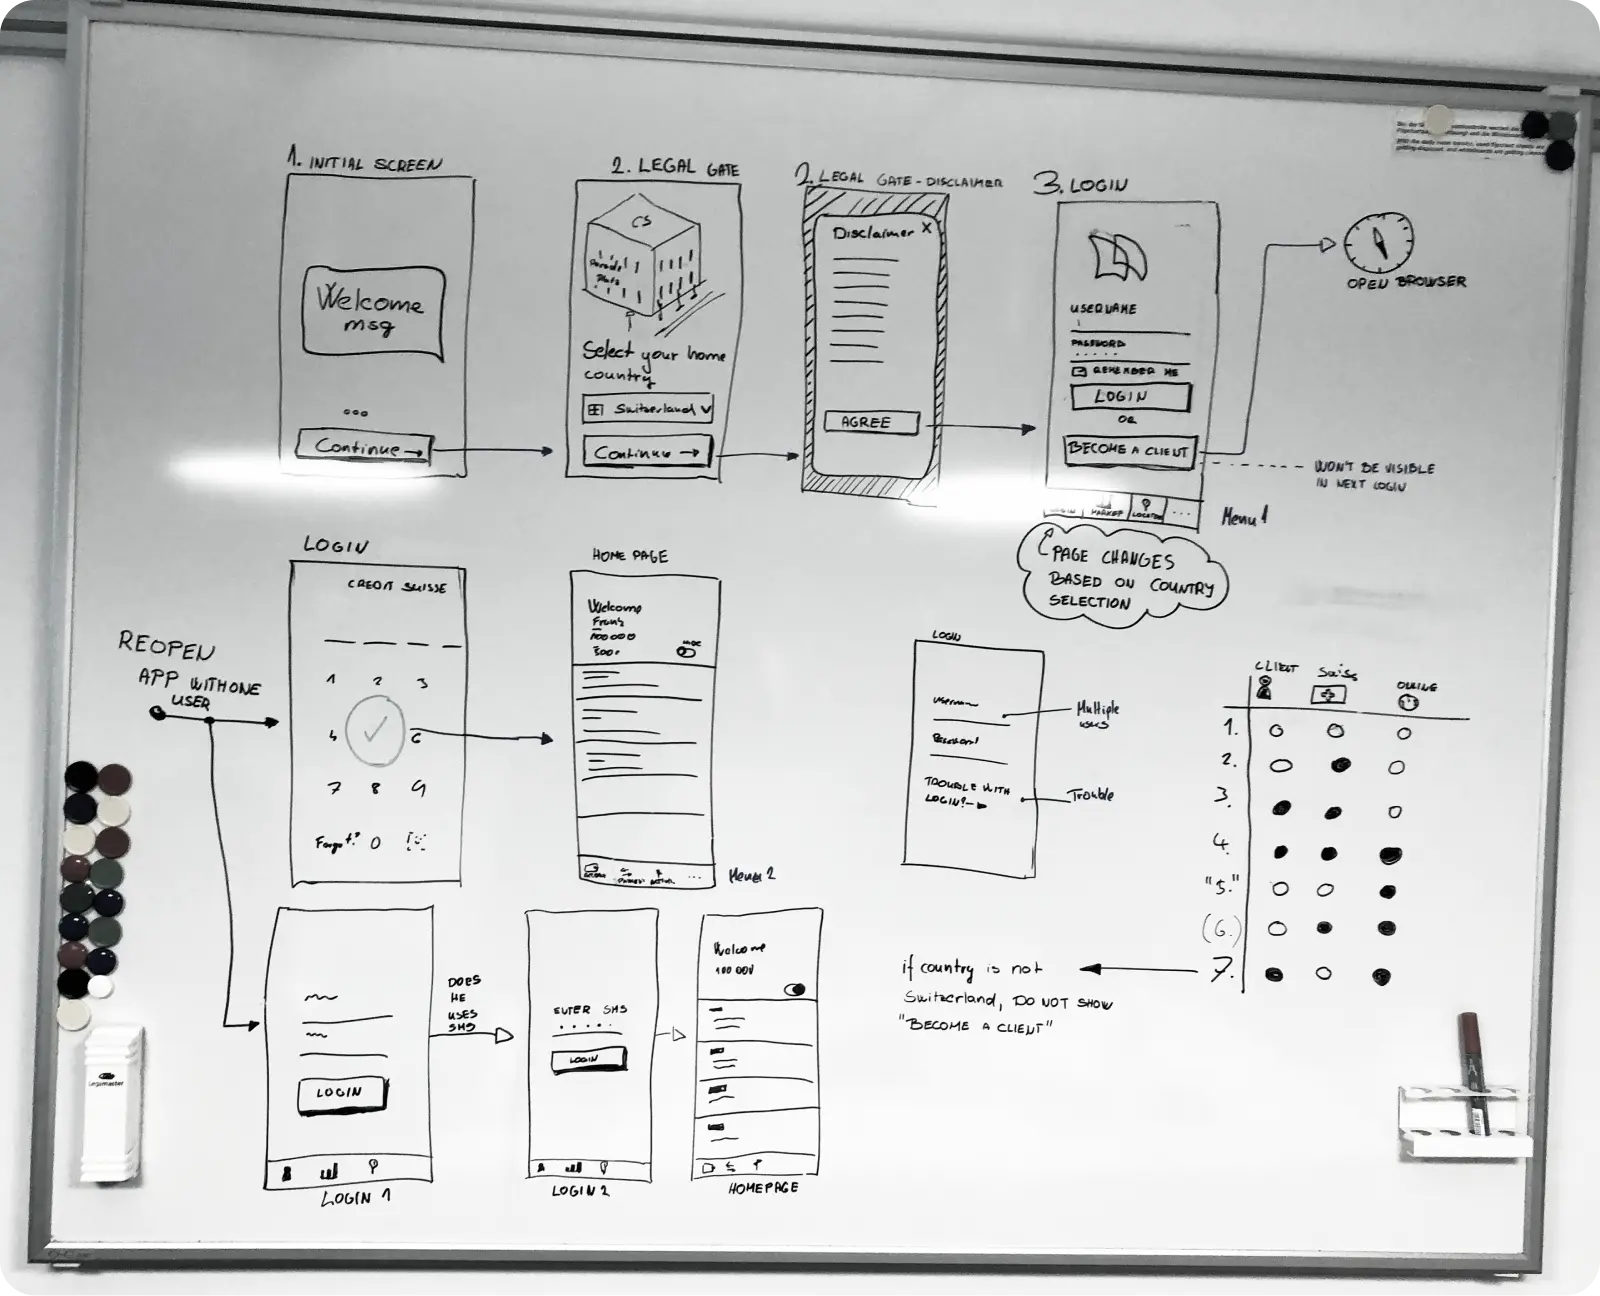 1. INITIAL SCREEN
Welcome
msg
Continue →
2. LEGAL GATE
CS
Select your home
country
Switzerland
Continue →
2. LEGAL GATE - DISCLAIMER
Disclaimer X
AGREE
3. LOGIN
USERNAME
PASSWORD
REMEMBER ME
LOGIN
OR
BECOME A CLIENT
LOGIN
MARKET
LOCATOR
...
Menu 1
OPEN BROWSER
WON'T BE VISIBLE
IN NEXT LOGIN
PAGE CHANGES
BASED ON COUNTRY
SELECTION
REOPEN
APP WITH ONE
USER
LOGIN
CREDIT SUISSE
1 2 3
4 6
7 8 9
Forgot? 0
HOME PAGE
Welcome
Menu 2
LOGIN
Username
Password
TROUBLE WITH
LOGIN? →
Multiple
users
Trouble
CLIENT
Swiss
1.
2.
3.
4.
"5."
(6.)
7.
if country is not
Switzerland, DO NOT SHOW
"BECOME A CLIENT"
LOGIN
LOGIN 1
DOES
HE
USES
SMS
ENTER SMS
LOGIN
LOGIN 2
Welcome
HOMEPAGE
Legamaster